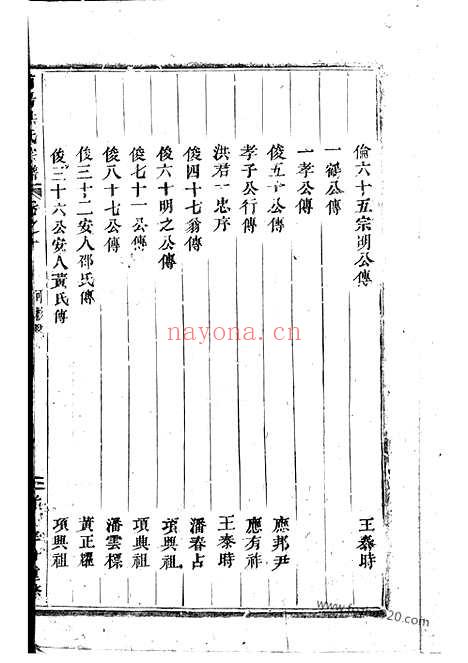 倫六十五宗明公傳 王泰時
一鶴公傳
一孝公傳
俊五十公傳 應邦尹
孝子公行傳 應有祚
洪君一忠序 王泰時
俊四十七翁傳 潘春占
俊六十明之公傳 項興祖
俊七十一公傳 項興祖
俊八十七公傳 潘雲標
俊三十二安人邵氏傳 黃正耀
俊三十六公安人黃氏傳 項興祖
nayona.cn